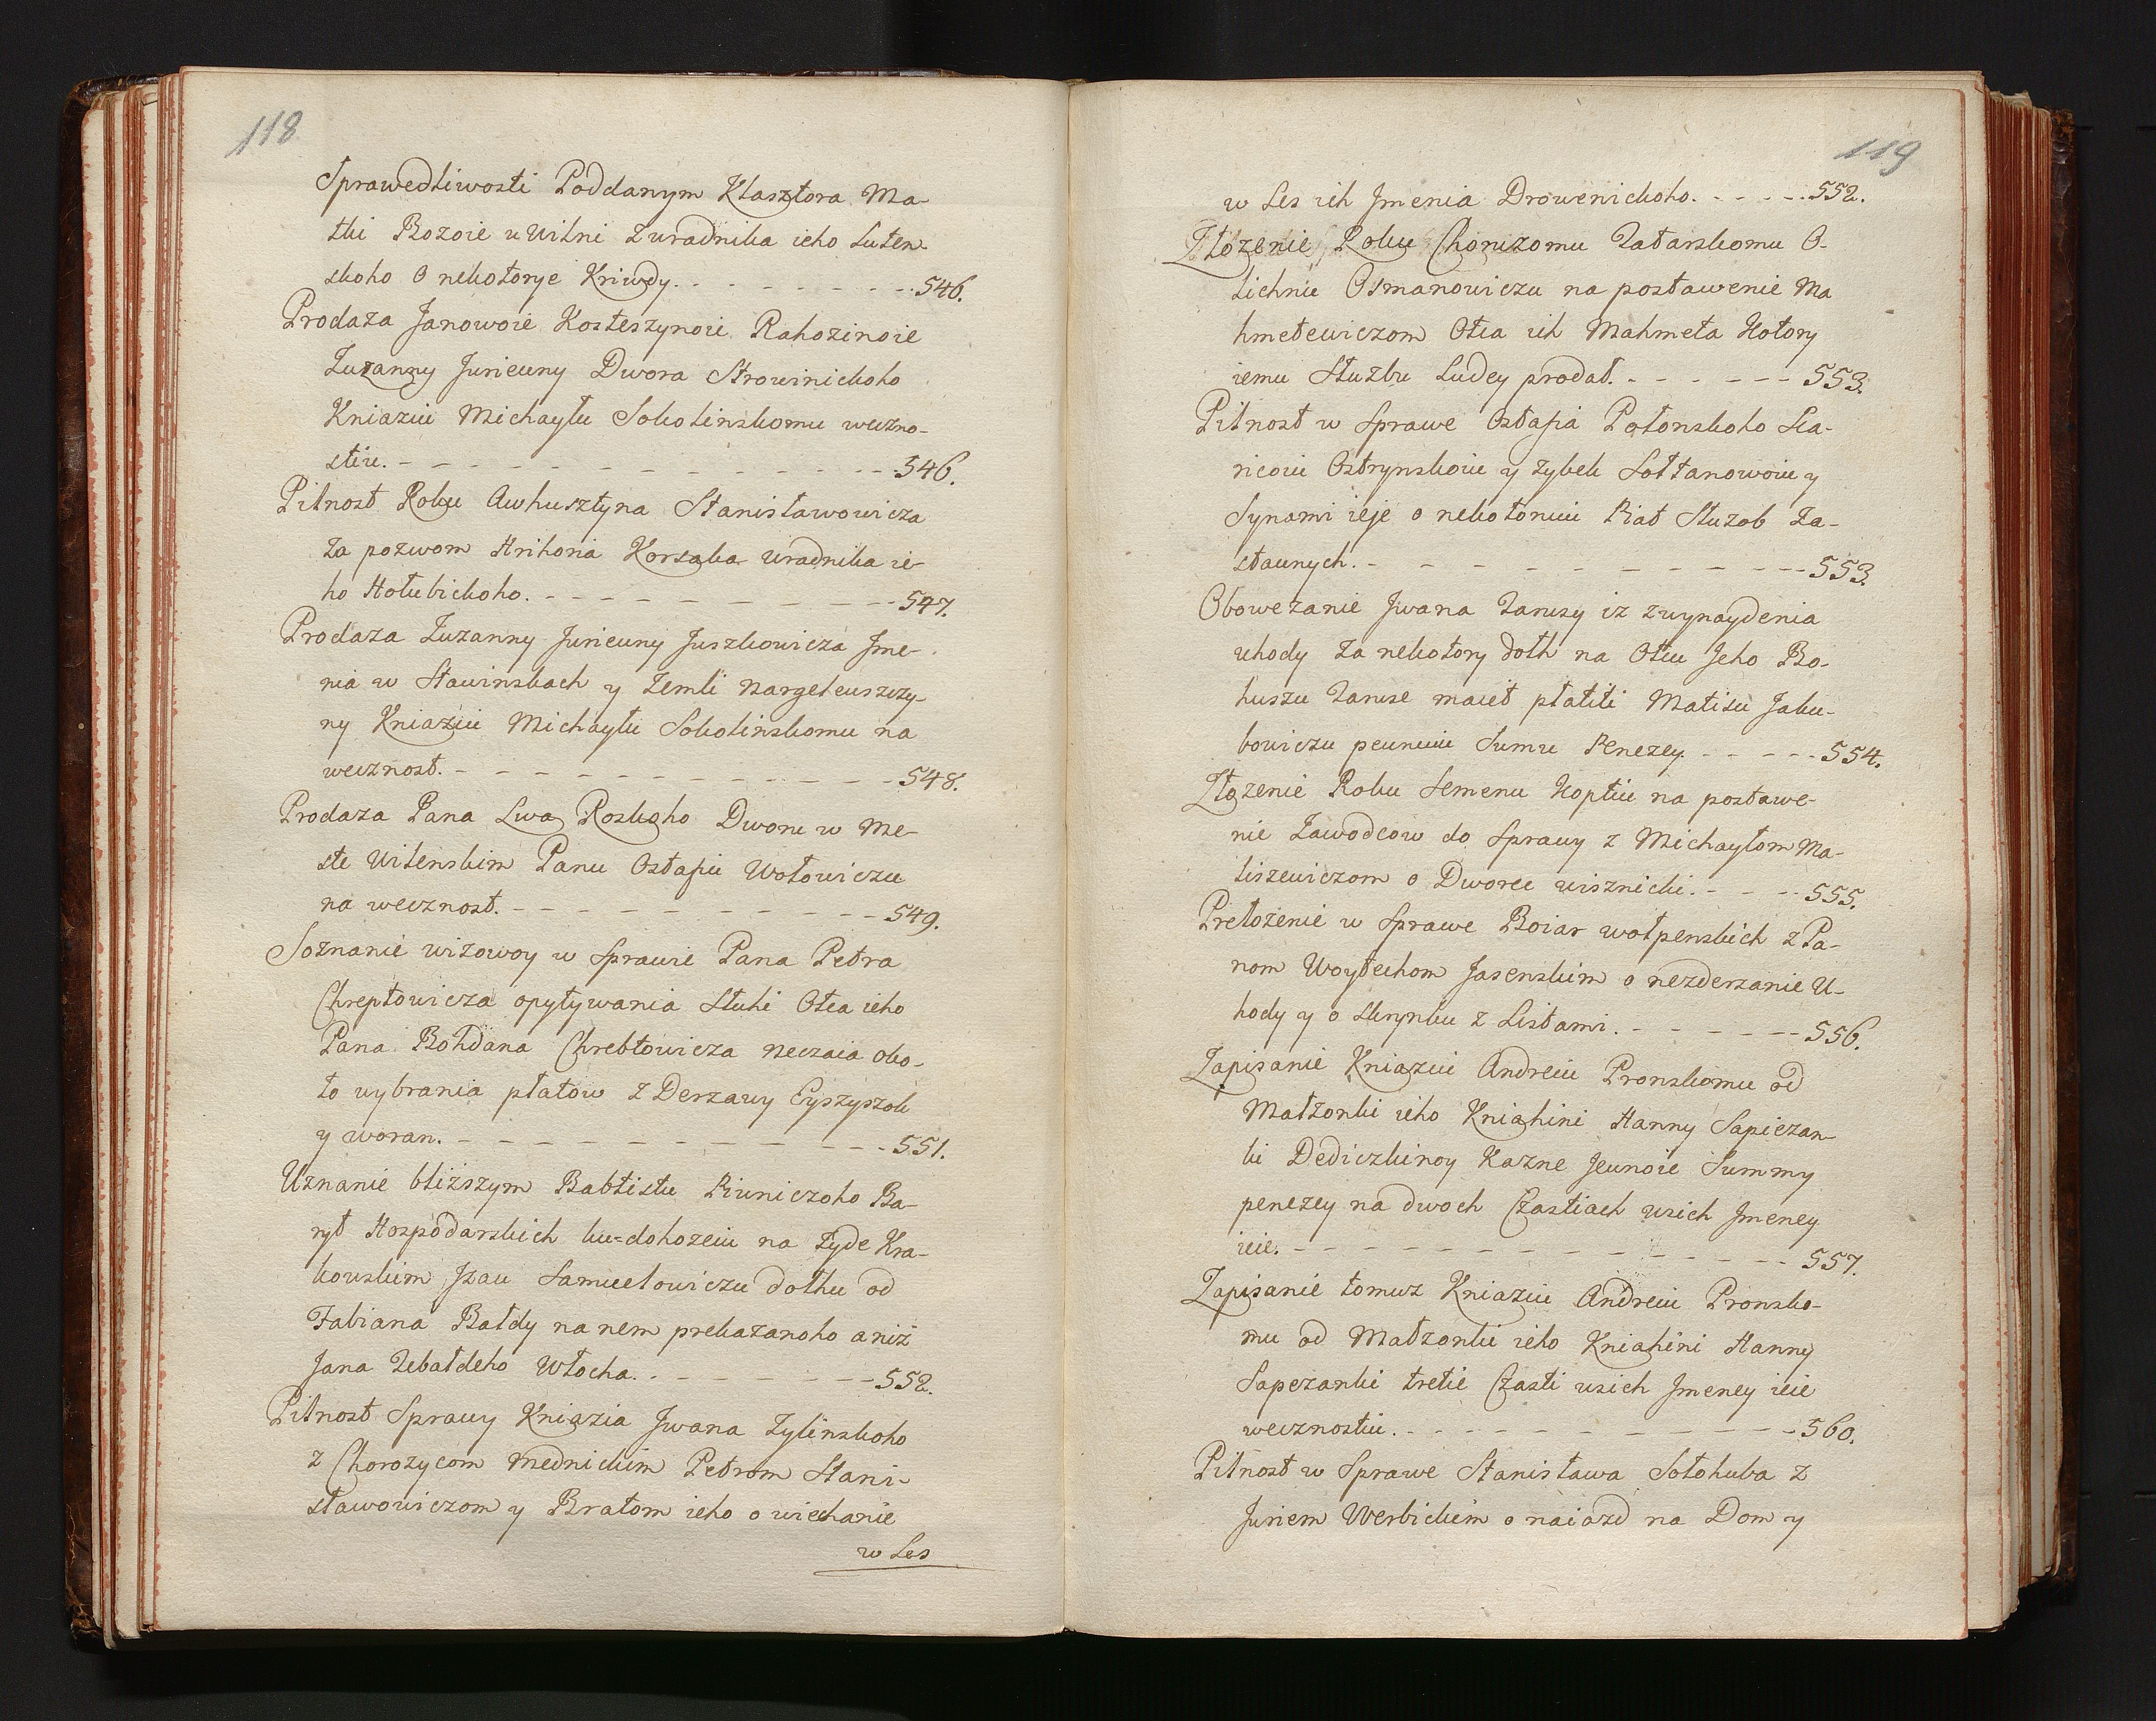 118
Sprawedliwosti Poddanym Klasztora Ma-
tki Bozoie u Wilni z uradnika ieho Luten-
skoho O nekotorye Kriwdy. - - - 546.
Prodaza Janowoie Kosteszynoie Rahozinoie
Zuzanny Juriewny Dwora Strowinickoho
Kniaziu Michayłu Sokolinskomu weczno-
stiu. - - - 546.
Pilnost Roku Awhusztyna Stanisławowicza
Za pozwom Hrihoria Korsaka Uradnika ie-
ho Hołubickoho. - - - 547.
Prodaza Zuzanny Juriewny Juszkowicza Jme-
nia w Stawinskach y Zemli Nargeleuszczy-
ny Kniaziu Michayłu Sokolinskomu na
wecznost. - - - 548.
Prodaza Pana Lwa Roskoho Dworu w Me-
ste Wilenskim Panu Ostafiu Wołowiczu
na wecznost. - - - 549.
Soznanie wizowoy w Sprawie Pana Petra
Chreptowicza opytywania Sluhi Otca ieho
Pana Bohdana Chrebtowicza Neczaia oko-
ło wybrania płatow z Derzawy Eyszyszok
y woran. - - - 551.
Uznanie bliższym Babtistu Piwniczoho Ba-
rył Hospodarskich ku-dohozeiu na żyde Kra-
kowskim Jzau Samuelowiczu dołhu od
Fabiana Bałdy na nem prekazanoho aniż
Jana Zebałdeho Włocha. - - - 552.
Pilnost Sprawy Kniazia Jwana Zylinskoho
z Chorozycom Mednickim Petrom Stani-
sławowiczom y Bratom ieho o wiechanie
w Les
119
w Les ich Jmenia Drowenickoho. - - - 552.
Złozenie Roku Choruzomu Tatarskomu O-
lichnie Osmanowiczu na postawenie Ma
hmetewiczom Otca ich Mahmeta Kotory
iemu Służbu Ludey prodał. - - - 553.
Pilnost w Sprawe Ostafia Połonskoho Sta-
ricoiu Ostrynskoiu y Zybek Sołtanowoiu y
Synami ieje o nekotoruiu Piat Służob Za-
stawnych. - - - 553.
Obowezanie Jwana Zaruzy iz zwynaydenia
uhody Za nekotory dołh na Otcu Jeho Bo-
huszu Zaruse maiet płatiti Matisu Jaku-
bowiczu pewnuiu Sumu Penezey. - - - 554.
Złozenie Roku Semenu Koptiu na postawe-
nie Zawodcow do Sprawy z Michayłom Ma-
tiszewiczom o Dworec wisznicki. - - - 555.
Prełożenie w Sprawe Boiar wołpenskich z Pa-
nom Woytechom Jasenskim o nezderzanie U-
hody y o Skrynku z Listami. - - - 556.
Zapisanie Kniaziu Andreiu Pronskomu od
Małzonki ieho Kniahini Hanny Sapiezan-
ki Dediczkinoy Kazne Jewnoie Summy
penezey na dwoch Czastiach wsich Jmeney
ieie. - - - 557.
Zapisanie tomuz Kniaziu Andreiu Pronsko-
mu od Małzonki ieho Kniahini Hanny
Sapezanki tretie Czasti wsich Jmeney ieie
wecznostiu. - - - 560.
Pilnost w Sprawe Stanisława Sołohuba z
Juriem Werbickim o naiazd na Dom y